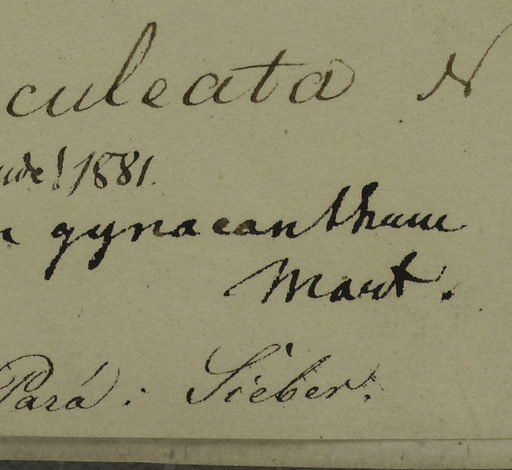 culeata N
ude! 1881.
gynacanthum
Mart.
Pará: Sieber.